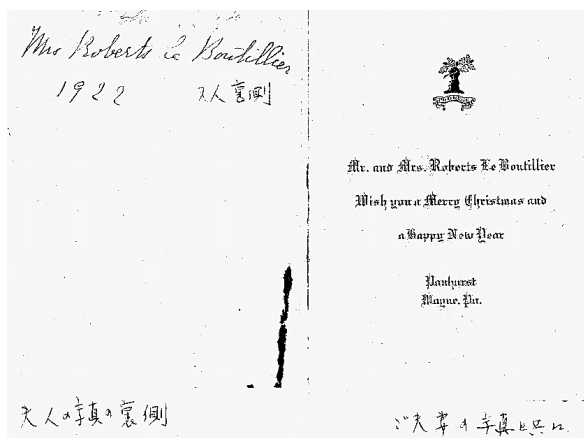 Mrs Roberts Le Boutillier
1922 夫人裏側
夫人の写真の裏側
Mr. and Mrs. Roberts Le Boutillier
Wish you a Merry Christmas and
a Happy New Year
Panhurst
Wayne, Pa.
ご夫妻の写真と共に